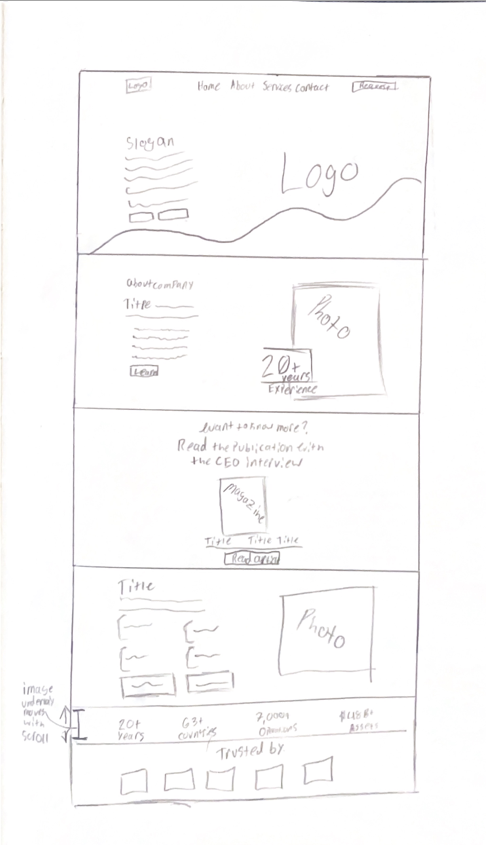 Logo Home About Services Contact
Slogan
Logo
about company
Title
Photo
Learn
20+
years
Experience
want to know more?
Read the Publication with
the CEO interview
magazine
Title Title Title
Read
Title
Photo
image
moves
with
scroll
20+
years
63+
Assets
Trusted by